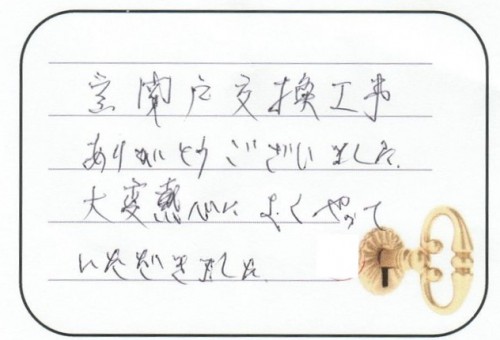 玄関戸交換工事
ありがとうございました.
大変熱心に よくやって
いただきました.